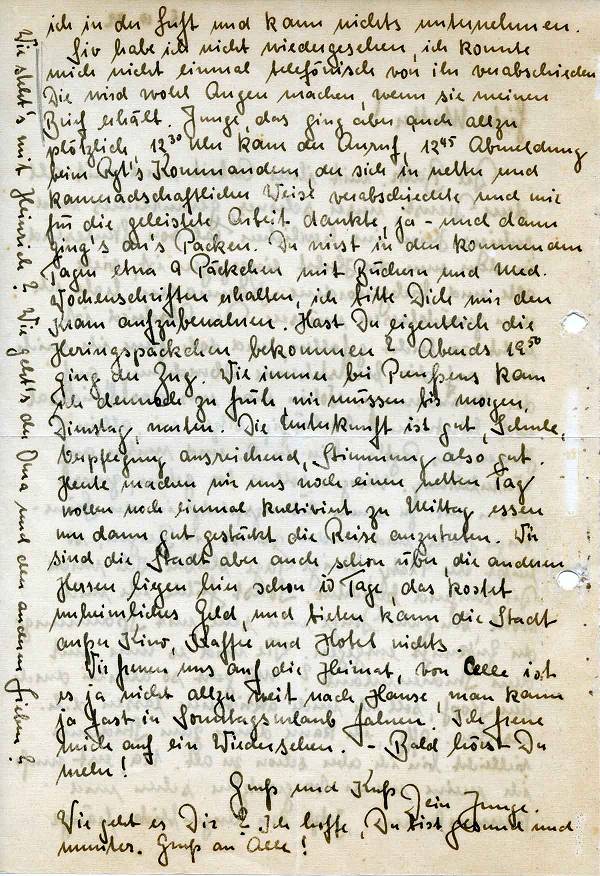 ich in der Luft und kann nichts unternehmen.
Liv habe ich nicht wiedergesehen, ich konnte
mich nicht einmal telefonisch von ihr verabschieden
Die wird wohl Augen machen, wenn sie meinen
Brief erhält. Junge, das ging aber auch allzu
plötzlich 12³⁰ Uhr kam der Anruf, 12⁴⁵ Abmeldung
beim Rgt's Kommandeur, der sich in netter und
kameradschaftlicher Weise verabschiedete und mir
für die geleistete Arbeit dankte, ja - und dann
ging's an's Packen. Du wirst in den kommenden
Tagen etwa 9 Päckchen mit Büchern und Med.
Wochenschriften erhalten, ich bitte Dich mir den
Kram aufzubewahren. Hast Du eigentlich die
Heringspäckchen bekommen? Abends 19⁵⁰
ging der Zug. Wie immer bei Preußens kam
ich dennoch zu früh wir müssen bis morgen,
Dienstag, warten. Die Unterkunft ist gut, Schule,
Verpflegung ausreichend, Stimmung also gut.
Heute machen wir uns noch einen netten Tag
wollen noch einmal kultiviert zu Mittag essen
um dann gut gestärkt die Reise anzutreten. Wir
sind die Stadt aber auch schon über, die anderen
Herren liegen hier schon 10 Tage, das kostet
unheimliches Geld, und bieten kann die Stadt
außer Kino, Kaffee und Hotel nichts.
Wir freuen uns auf die Heimat, von Celle ist
es ja nicht allzu weit nach Hause, man kann
ja fast in Sonntagsurlaub fahren. Ich freue
mich auf ein Wiedersehen. - Bald hörst Du
mehr!
Gruß und Kuß
Dein Junge.
Wie geht es Dir? Ich hoffe, Du bist gesund und
munter. Gruß an Alle!
Wie steht's mit Heinrich? Wie geht's der Oma und den anderen Lieben?